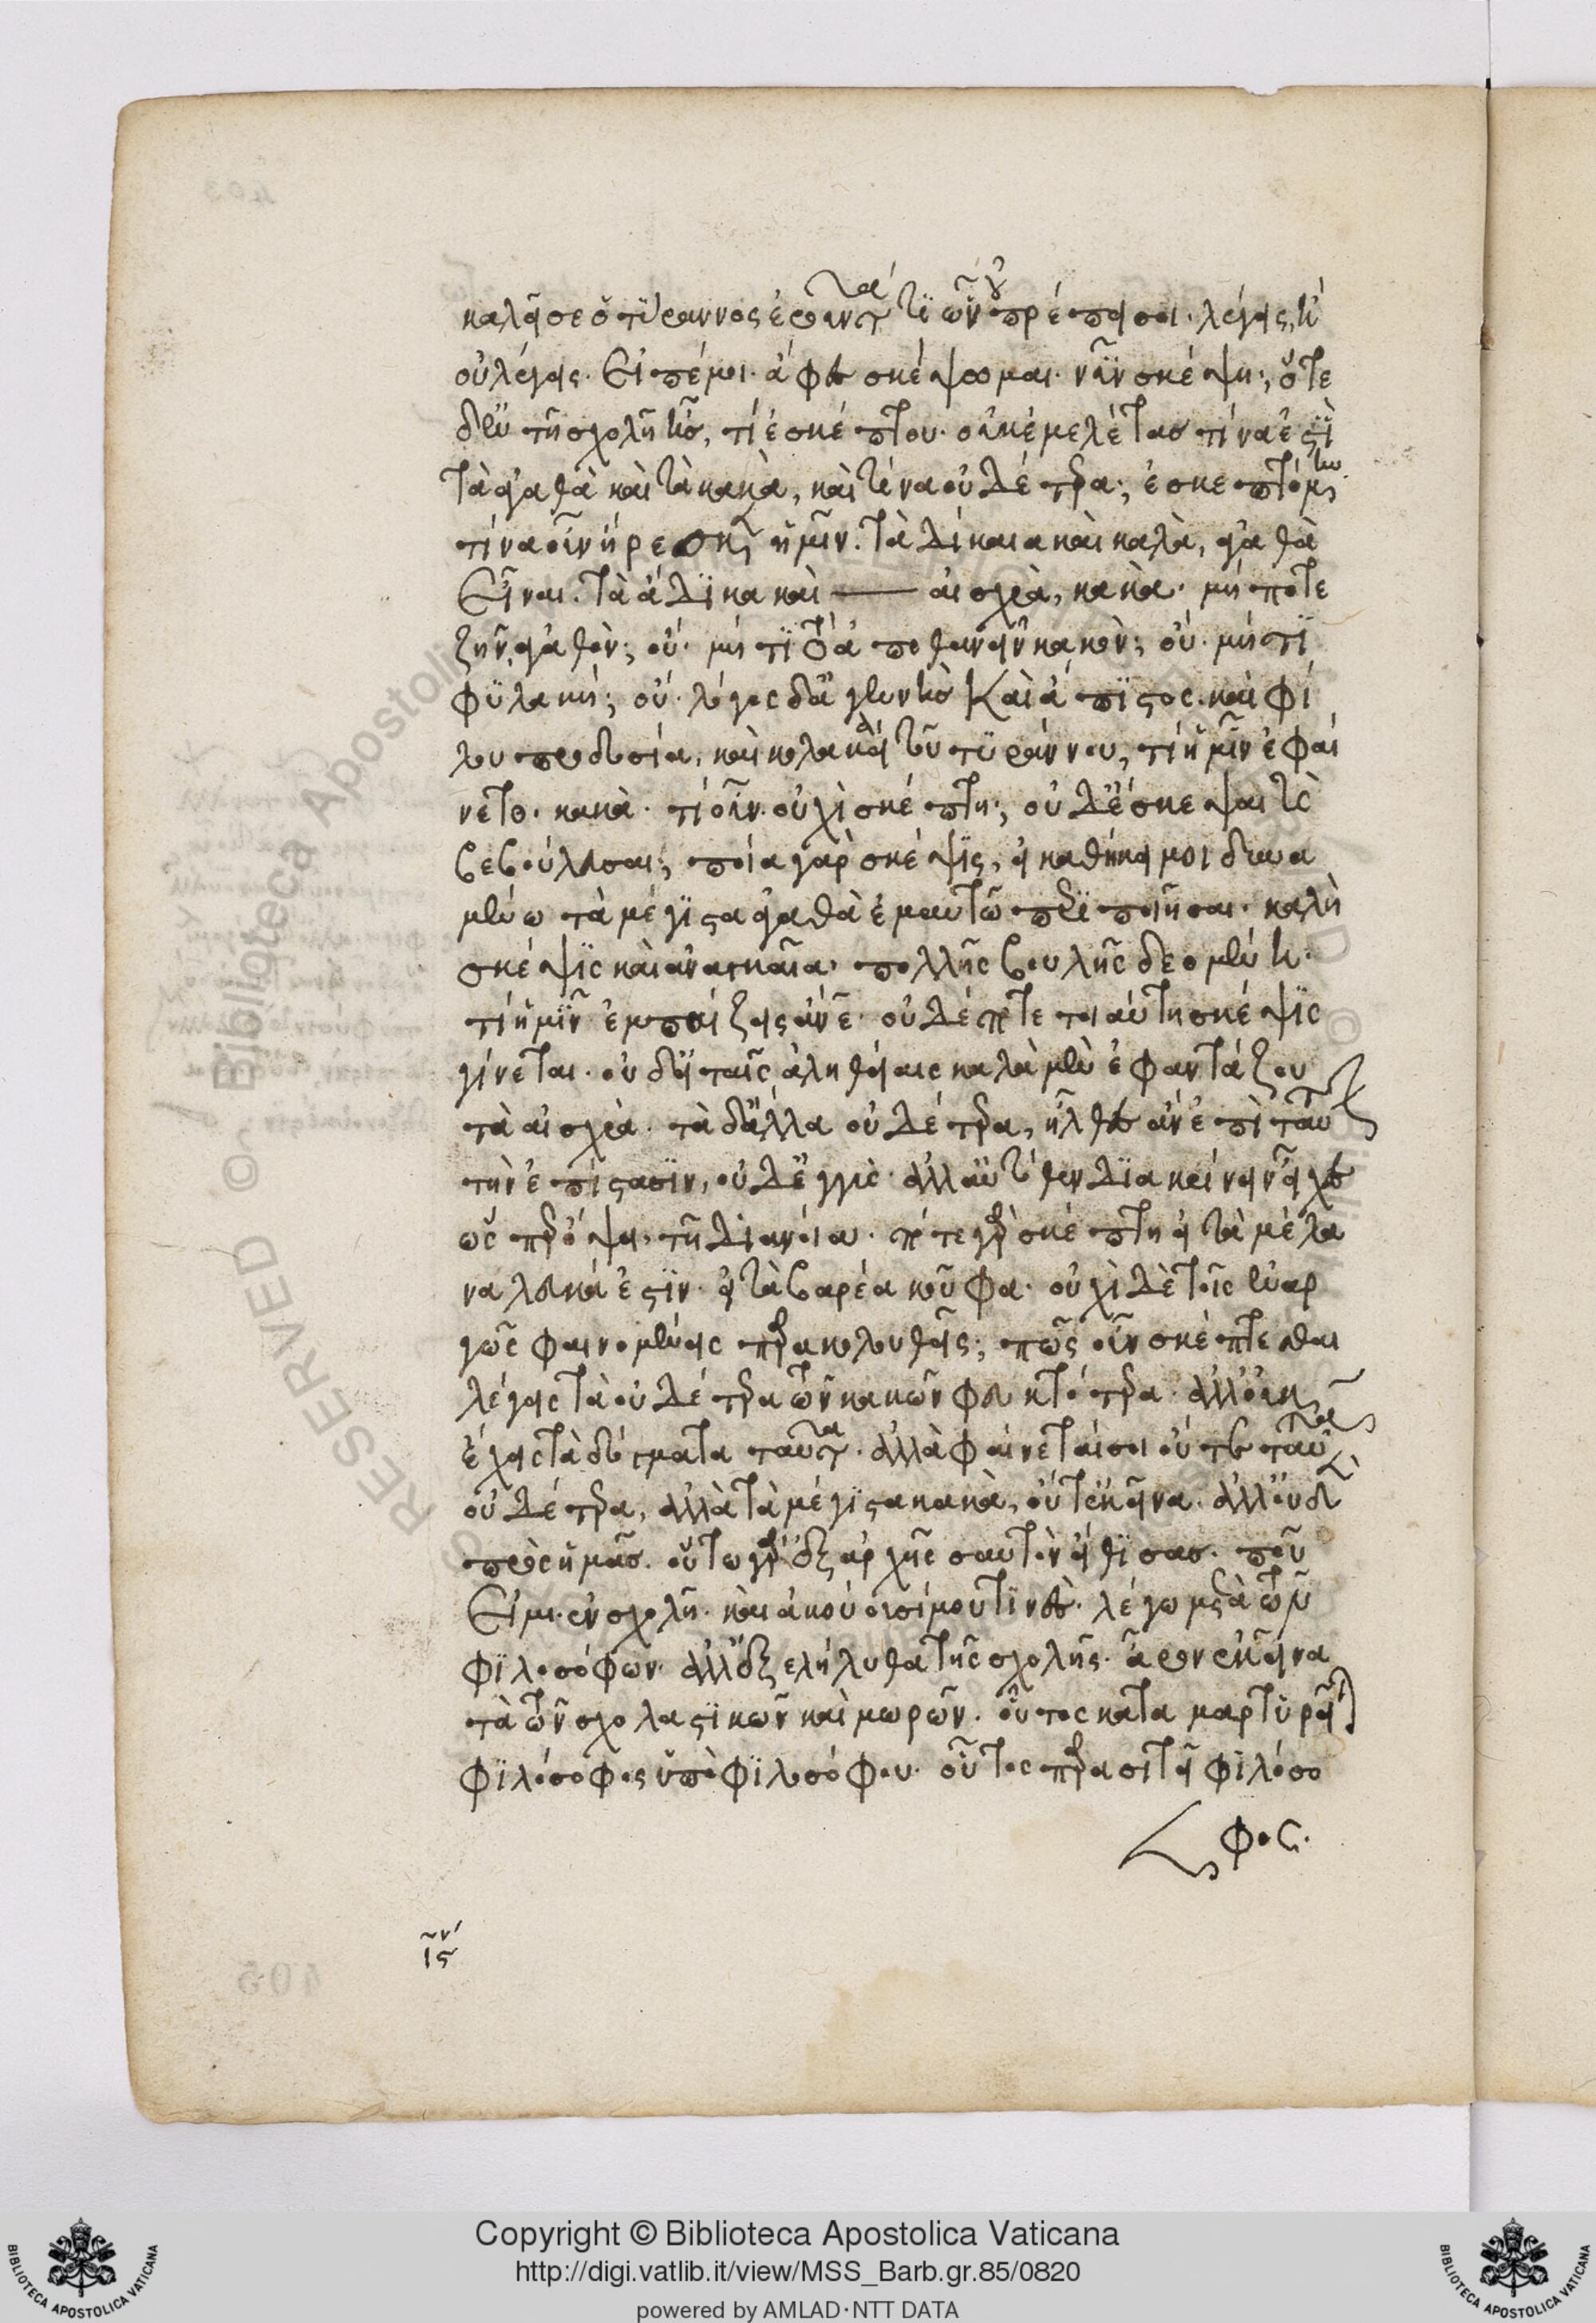 καλεῖ σε ὁ τύραννος ἐροῦντά τι ὧν οὐ πρέπει σοι. λέγεις, ἢ
οὐ λέγεις. Εἰπέ μοι. ἄφες σκέψομαι. νῦν σκέψῃ; ὅτε
δὲ ἐν τῇ σχολῇ ἦς, τί ἐσκέπτου. οὐκ ἐμελέτας τίνα ἐστὶ
τὰ ἀγαθὰ καὶ τὰ κακὰ, καὶ τίνα οὐδέτερα; ἐσκεπτόμην
τίνα οὖν ἤρεσκεν ἡμῖν. τὰ δίκαια καὶ καλὰ, ἀγαθὰ
Εἶναι. τὰ ἄδικα καὶ αἰσχρὰ, κακὰ. μήποτε
ζῆν ἀγαθὸν; οὔ. μήτι τὸ ἀποθανεῖν κακὸν; οὔ. μήτι
φυλακή; οὔ. λόγος δ' ἀγεννὴς Καὶ ἄπιστος. καὶ φί
λου προδοσία, καὶ κολακεία τοῦ τυράννου, τί ἡμῖν ἐφαί
νετο. κακὰ. τί οὖν. οὐχὶ σκέπτῃ; οὐδ' ἔσκεψαι τὸ
βεβούλευσαι; ποία γὰρ σκέψις, εἰ καθήκει μοι δυνα
μένῳ τὰ μέγιστα ἀγαθὰ ἐμαυτῷ περιποιῆσαι. καλὴ
σκέψις καὶ ἀναγκαῖα. πολλῆς βουλῆς δεομένη.
τί ἡμῖν ἐμπαίζεις ἄνε. οὐδέποτε τοιαύτη σκέψις
γίνεται. οὐδ' εἰ ταῖς ἀληθείαις καλὰ μὲν ἐφαντάζου
τὰ αἰσχρὰ. τὰ δ' ἄλλα οὐδέτερα, ἦλθες ἂν ἐπὶ ταύ
την ἐπίστασιν, οὐδ' ἐγγὺς. ἀλλ' αὐτόθεν διακρίνειν εἶχες
ὡς πρ ὄψει, τῇ διανοίᾳ. πότε γὰρ σκέπτῃ εἰ τὰ μέλα
να λευκά ἐστιν. εἰ τὰ βαρέα κοῦφα. οὐχὶ δὲ τοῖς ἐναρ
γῶς φαινομένοις παρακολουθεῖς; πῶς οὖν σκέπτεσθαι
λέγεις τὰ οὐδέτερα τῶν κακῶν φευκτότερα. ἀλλ' οὐκ
ἔχεις τὰ δόγματα ταῦτα. ἀλλὰ φαίνεταί σοι οὔτε ταῦτα
οὐδέτερα, ἀλλὰ τὰ μέγιστα κακὰ, οὔτ' ἐκεῖνα. ἀλλ' οὐδὲν
πρὸς ἡμᾶς. οὕτω γὰρ ἐξ ἀρχῆς σαυτὸν εἴθισας. ποῦ
Εἰμι. ἐν σχολῇ. καὶ ἀκούουσί μου τίνες. λέγω μετὰ τῶν
φιλοσόφων. ἀλλ' ἐξελήλυθα τῆς σχολῆς. ἆρον ἐκεῖνα
τὰ τῶν σχολαστικῶν καὶ μωρῶν. οὗτος καταμαρτυρεῖται
φιλόσοφος ὑπὸ φιλοσόφου. οὗτος παρασιτεῖ φιλόσο
φος.